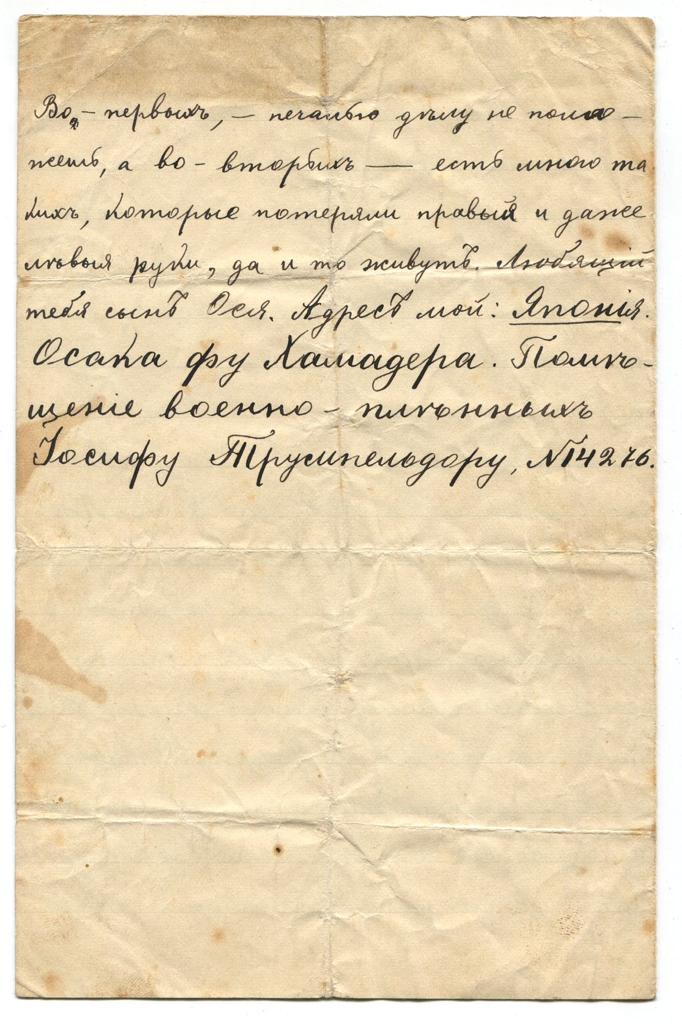 Во-первыхъ, – печалью дѣлу не помо-
жешь, а во-вторыхъ — есть много та
кихъ, которые потеряли правыя и даже
лѣвыя руки, да и то живутъ. Любящій
тебя сынъ Ося. Адресъ мой: Японія.
Осака фу Хамадера. Помѣ-
щеніе военно-плѣнныхъ
Іосифу Трумпельдору, №14276.